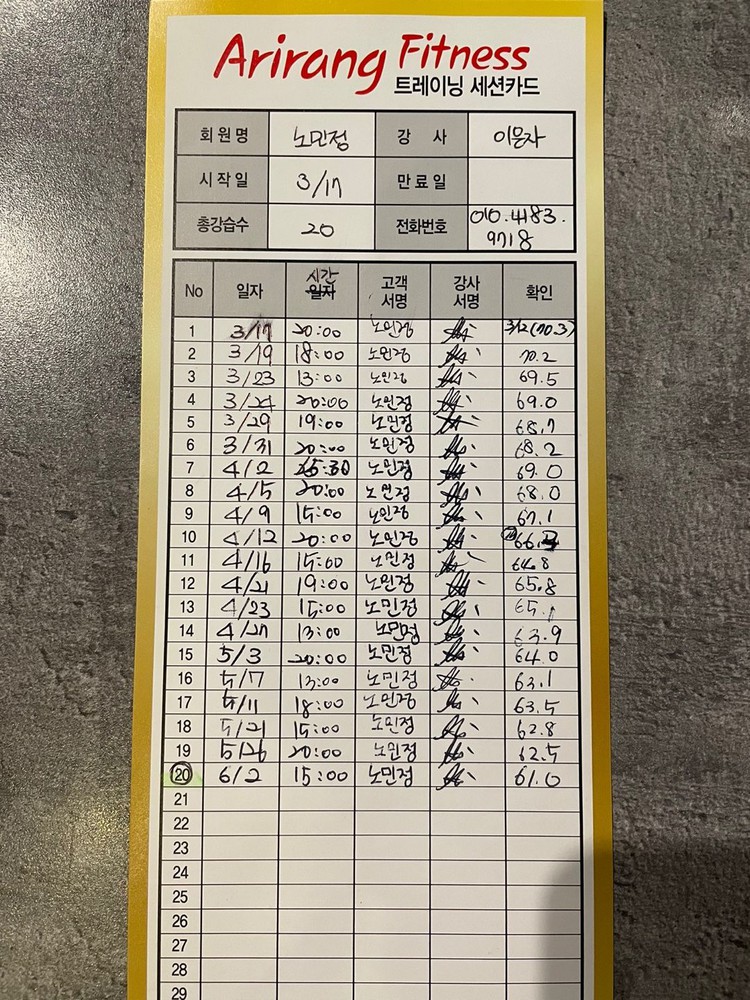 Arirang Fitness
트레이닝 세션카드
회원명 노민정 강 사
시작일 3/17 만료일
총강습수 20 전화번호 010.4183.
9718
시간
No 일자 일자 고객 강사 확인
서명 서명
1 3/17 20:00 노민정 3/2(70.3)
2 3/19 18:00 노민정 70.2
3 3/23 13:00 노민정 69.5
4 3/24 20:00 노민정 69.0
5 3/29 19:00 노민정 68.7
6 3/31 20:00 노민정 68.2
7 4/2 노민정 69.0
8 4/5 20:00 노민정 68.0
9 4/9 15:00 노민정 67.1
10 4/12 20:00 노민정
11 4/16 15:00 노민정 64.8
12 4/21 19:00 노민정 65.8
13 4/23 15:00 노민정 65.1
14 4/27 13:00 노민정 63.9
15 5/3 20:00 노민정 64.0
16 5/7 13:00 노민정 63.1
17 5/11 18:00 노민정 63.5
18 5/21 15:00 노민정 62.8
19 5/26 20:00 노민정 62.5
20 6/2 15:00 노민정 61.0
21
22
23
24
25
26
27
28
29